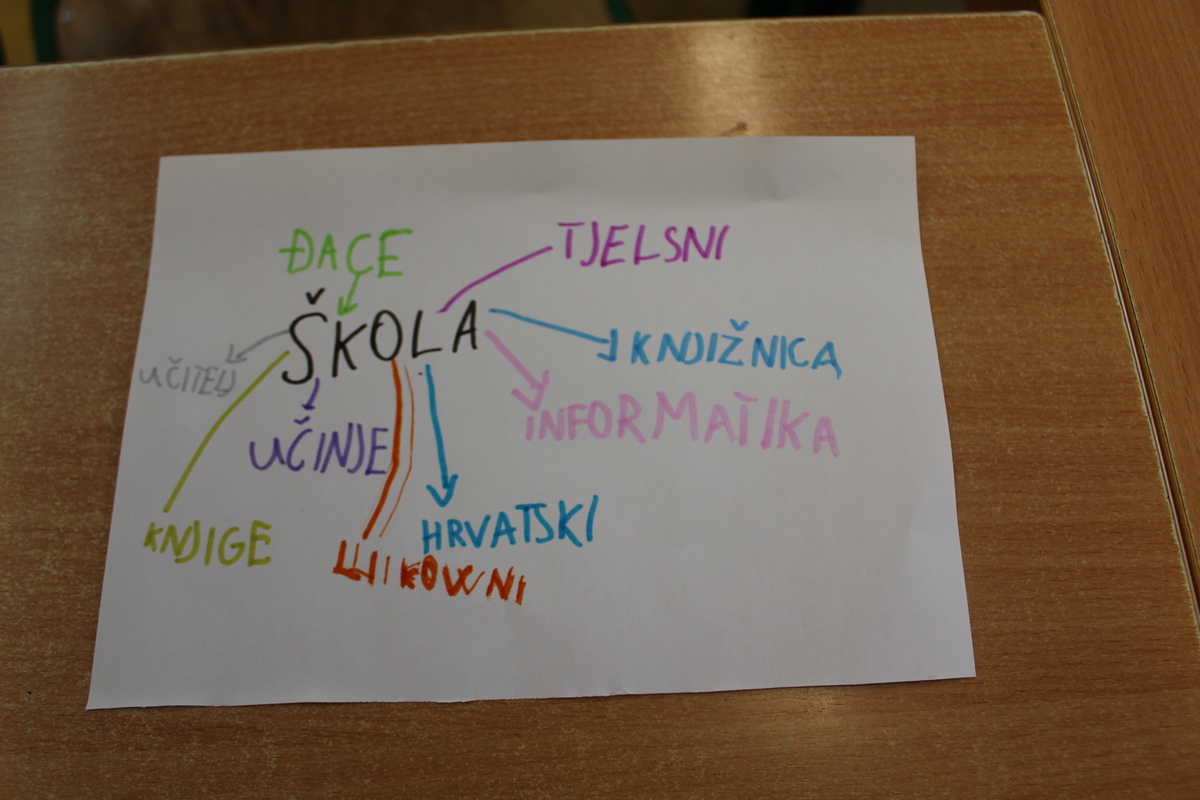 ĐAČE
TJELSNI
ŠKOLA
KNJIŽNICA
UČITELJ
INFORMATIKA
UČINJE
KNJIGE
HRVATSKI
LIKOVNI